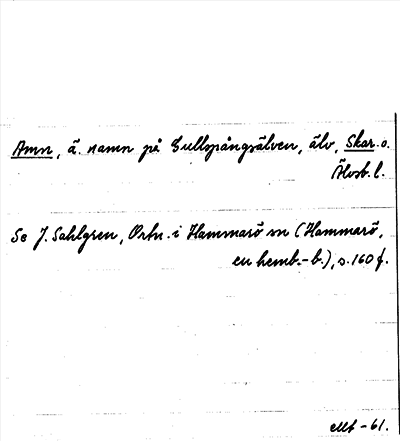 Amn, ä. namn på Gullspångsälven, älv, Skar. o.
Älvsb. l.
Se J. Sahlgren, Ortn. i Hammarö sn (Hammarö,
en hemb.-b.), s. 160 f.
-61.